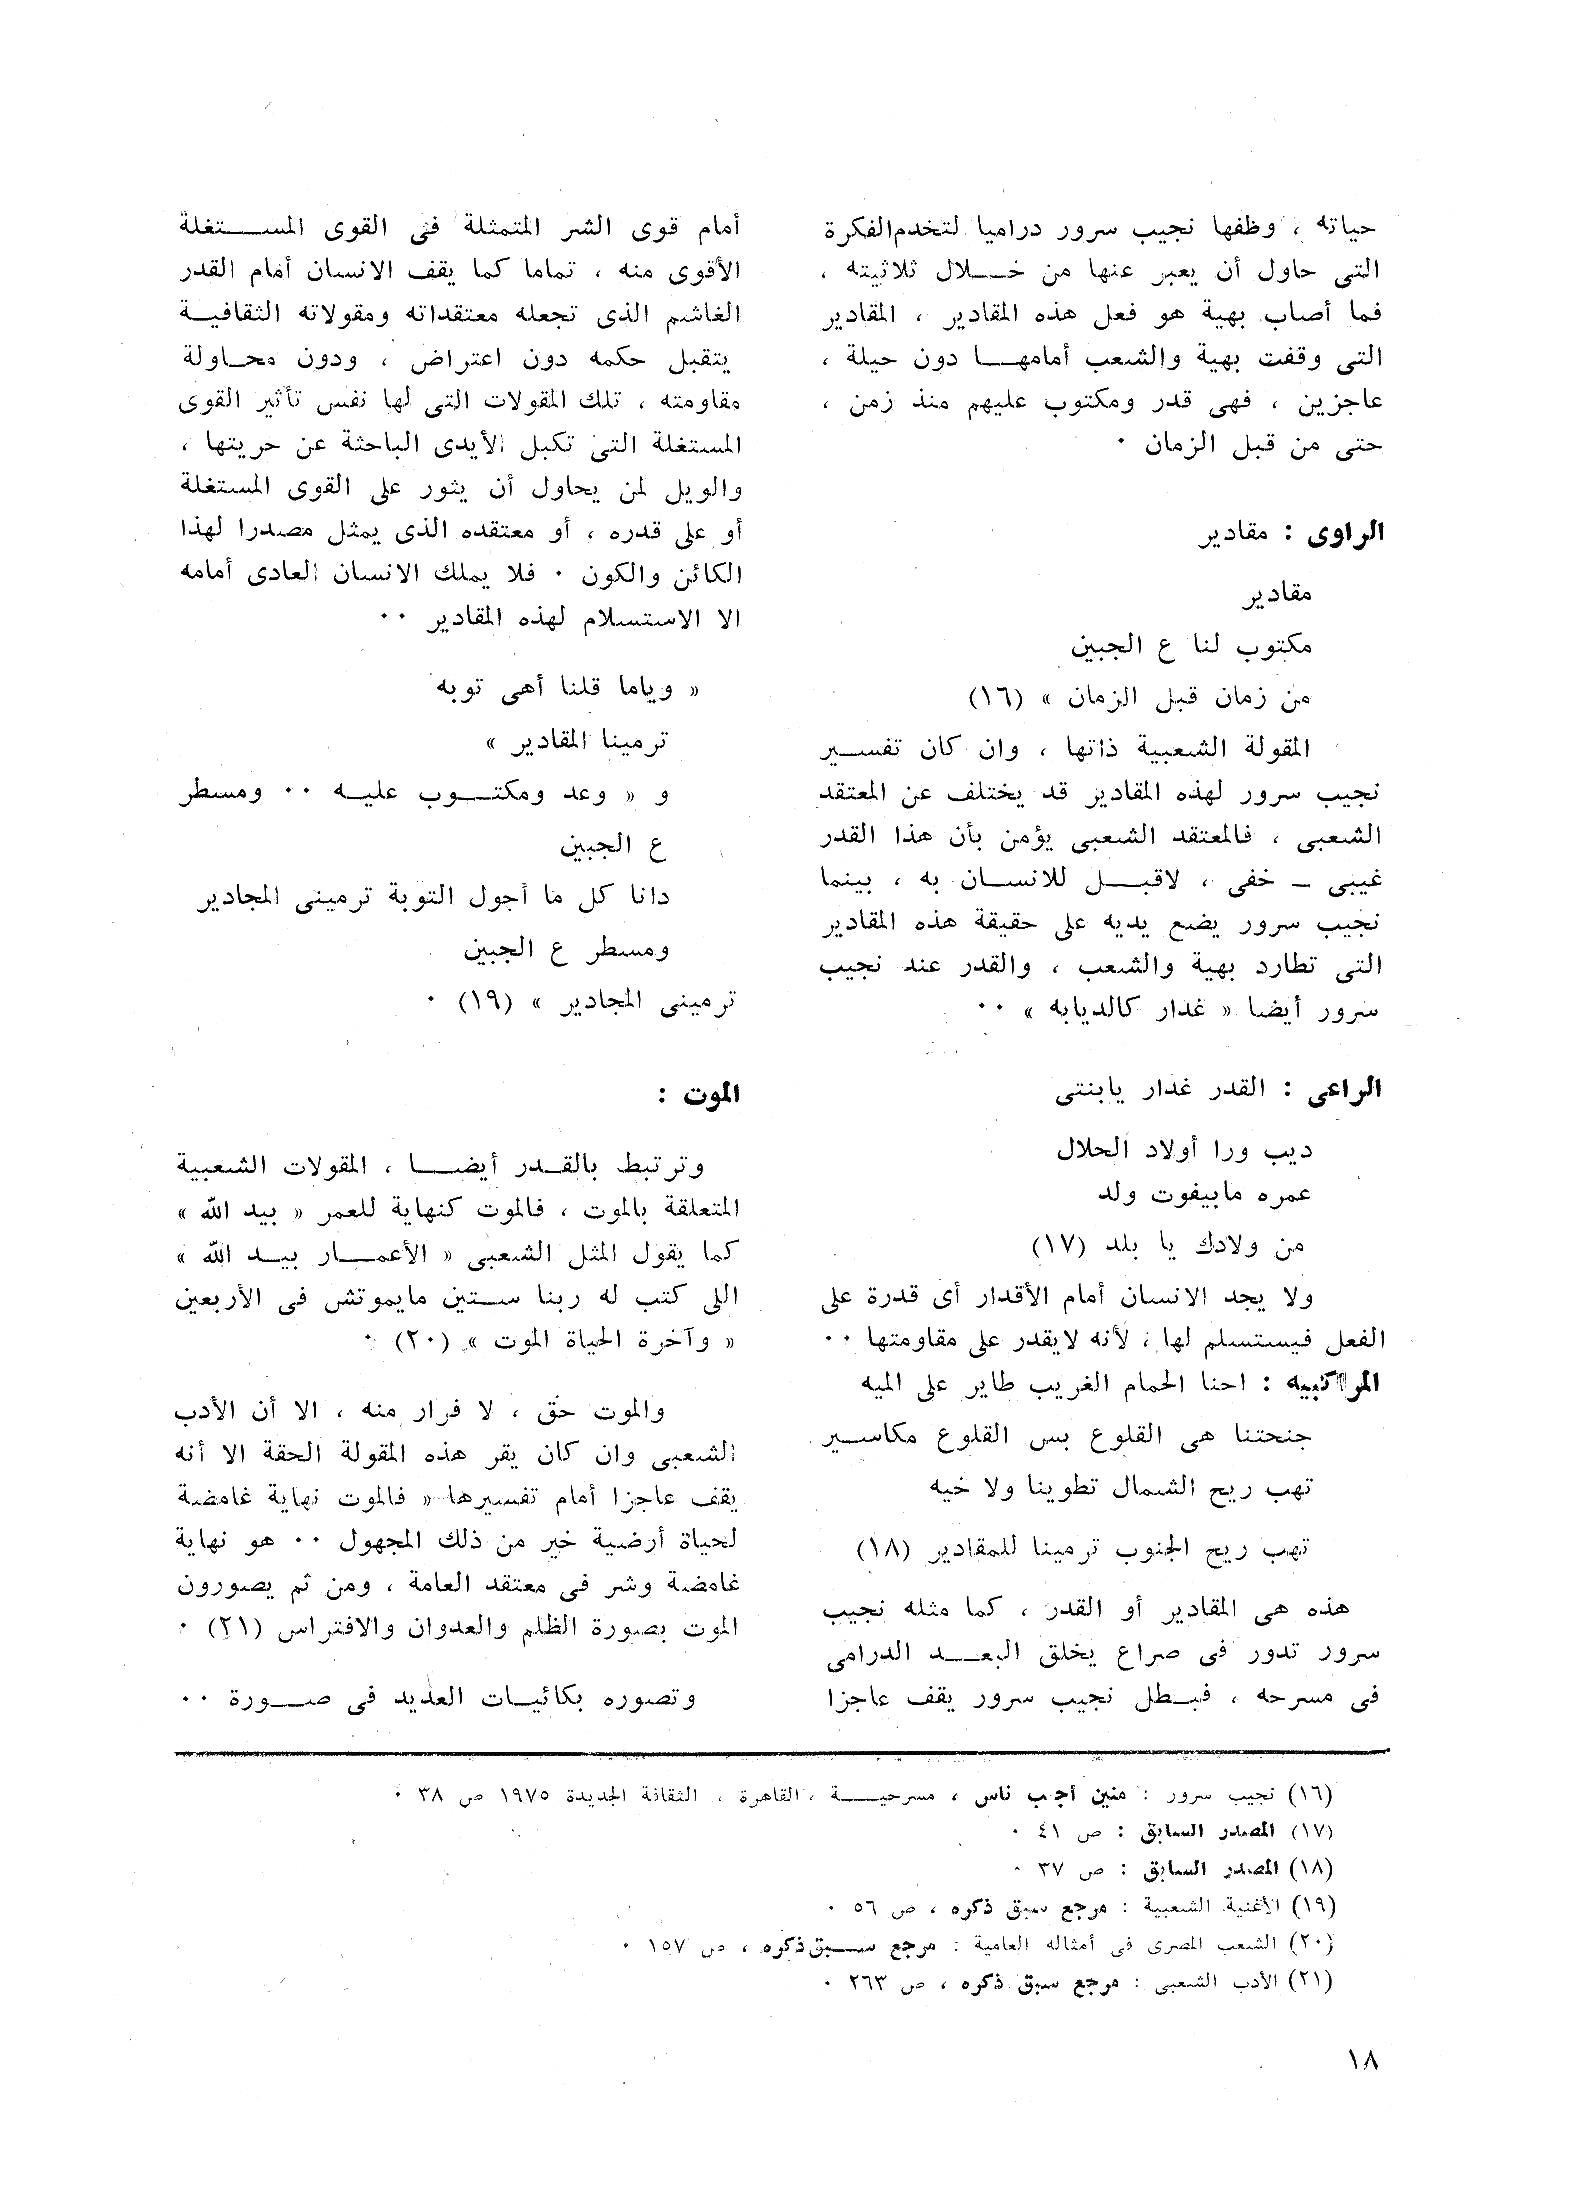 حياته ، وظفها نجيب سرور دراميا لتخدم الفكرة
التى حاول أن يعبر عنها من خــلال ثلاثيته ،
فما أصاب بهية هو فعل هذه المقادير ، المقادير
التى وقفت بهية والشعب أمامهــا دون حيلة ،
عاجزين ، فهى قدر ومكتوب عليهم منذ زمن ،
حتى من قبل الزمان ٠
الراوى : مقادير
مقادير
مكتوب لنا ع الجبين
من زمان قبل الزمان » (١٦)
المقولة الشعبية ذاتها ، وان كان تفســير
نجيب سرور لهذه المقادير قد يختلف عن المعتقد
الشعبى ، فالمعتقد الشعبى يؤمن بأن هذا القدر
غيبى ـ خفى ، لاقبــل للانســان به ، بينما
نجيب سرور يضع يديه على حقيقة هذه المقادير
التى تطارد بهية والشعب ، والقدر عند نجيب
سرور أيضا « غدار كالديابه » ٠٠
الراعى : القدر غدار يابنتى
ديب ورا أولاد الحلال
عمره مابيفوت ولد
من ولادك يا بلد (١٧)
ولا يجد الانسان أمام الأقدار أى قدرة على
الفعل فيستسلم لها ، لأنه لايقدر على مقاومتها ٠٠
المراكبيه : احنا الحمام الغريب طاير على الميه
جنحتنا هى القلوع بس القلوع مكاســير
تهب ريح الشمال تطوينا ولا خيه
تهب ريح الجنوب ترمينا للمقادير (١٨)
هذه هى المقادير أو القدر ، كما مثله نجيب
سرور تدور فى صراع يخلق البعــد الدرامى
فى مسرحه ، فبـطل نجيب سرور يقف عاجزا
أمام قوى الشر المتمثلة فى القوى المســتغلة
الأقوى منه ، تماما كما يقف الانسان أمام القدر
الغاشم الذى تجعله معتقداته ومقولاته الثقافيــة
يتقبل حكمه دون اعتراض ، ودون محـاولة
مقاومته ، تلك المقولات التى لها نفس تأثير القوى
المستغلة التى تكبل الأيدى الباحثة عن حريتها ،
والويل لمن يحاول أن يثور على القوى المستغلة
أو على قدره ، أو معتقده الذى يمثل مصدرا لهذا
الكائن والكون ٠ فلا يملك الانسان العادى أمامه
الا الاستسلام لهذه المقادير ٠٠
« وياما قلنا أهى توبه
ترمينا المقادير »
و « وعد ومكتــوب عليــه ٠٠ ومسطر
ع الجبين
دانا كل ما أجول التوبة ترمينى المجادير
ومسطر ع الجبين
ترمينى المجادير » (١٩) ٠
الموت :
وترتبط بالقــدر أيضــا ، المقولات الشعبية
المتعلقة بالموت ، فالموت كنهاية للعمر « بيد الله »
كما يقول المثل الشعبى « الأعمــار بيــد الله »
اللى كتب له ربنا ســتين مايموتش فى الأربعين
« وآخرة الحياة الموت » (٢٠) ٠
والموت حق ، لا فرار منه ، الا أن الأدب
الشعبى وان كان يقر هذه المقولة الحقة الا أنه
يقف عاجزا أمام تفسيرها « فالموت نهاية غامضة
لحياة أرضية خير من ذلك المجهول ٠٠ هو نهاية
غامضة وشر فى معتقد العامة ، ومن ثم يصورون
الموت بصورة الظلم والعدوان والافتراس (٢١) ٠
وتصوره بكائيـات العديد فى صــورة ٠٠
(١٦) نجيب سرور : منين أجيب ناس ، مسرحيــة ، القاهرة ، الثقافة الجديدة ١٩٧٥ ص ٣٨ ٠
(١٧) المصدر السابق : ص ٤١ ٠
(١٨) المصدر السابق : ص ٣٧ ٠
(١٩) الأغنية الشعبية : مرجع سبق ذكره ، ص ٥٦ ٠
(٢٠) الشعب المصرى فى أمثاله العامية : مرجع ســبق ذكره ، ص ١٥٧ ٠
(٢١) الأدب الشعبى : مرجع سبق ذكره ، ص ٢٦٣ ٠
١٨